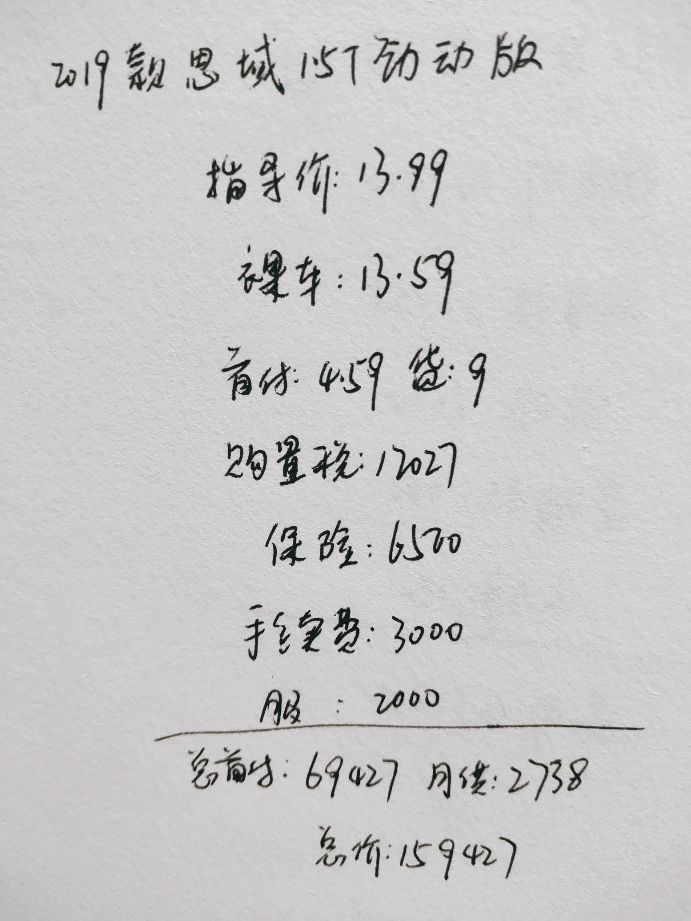 2019款思域1.5T劲动版
指导价:13.99
裸车:13.59
首付:4.59 贷:9
购置税:12027
保险:6500
手续费:3000
服:2000
总首付:69427 月供:2738
总价:159427